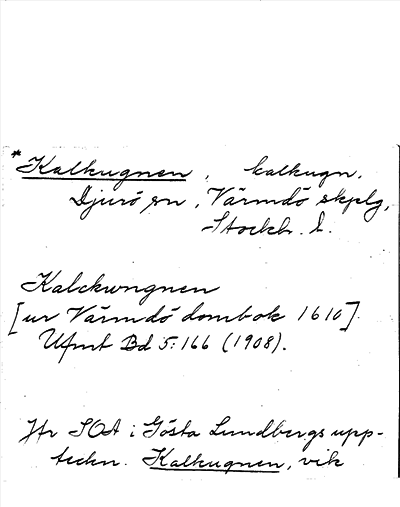 *Kalkugnen, kalkugn,
Djurö sn, Värmdö skplg,
Stockh. l.
Kalckwngnen
[ur Värmdö dombok 1610].
Ufmt Bd 5:166 (1908).
Jfr SOA i Gösta Lundbergs upp-
teckn. Kalkugnen, vik